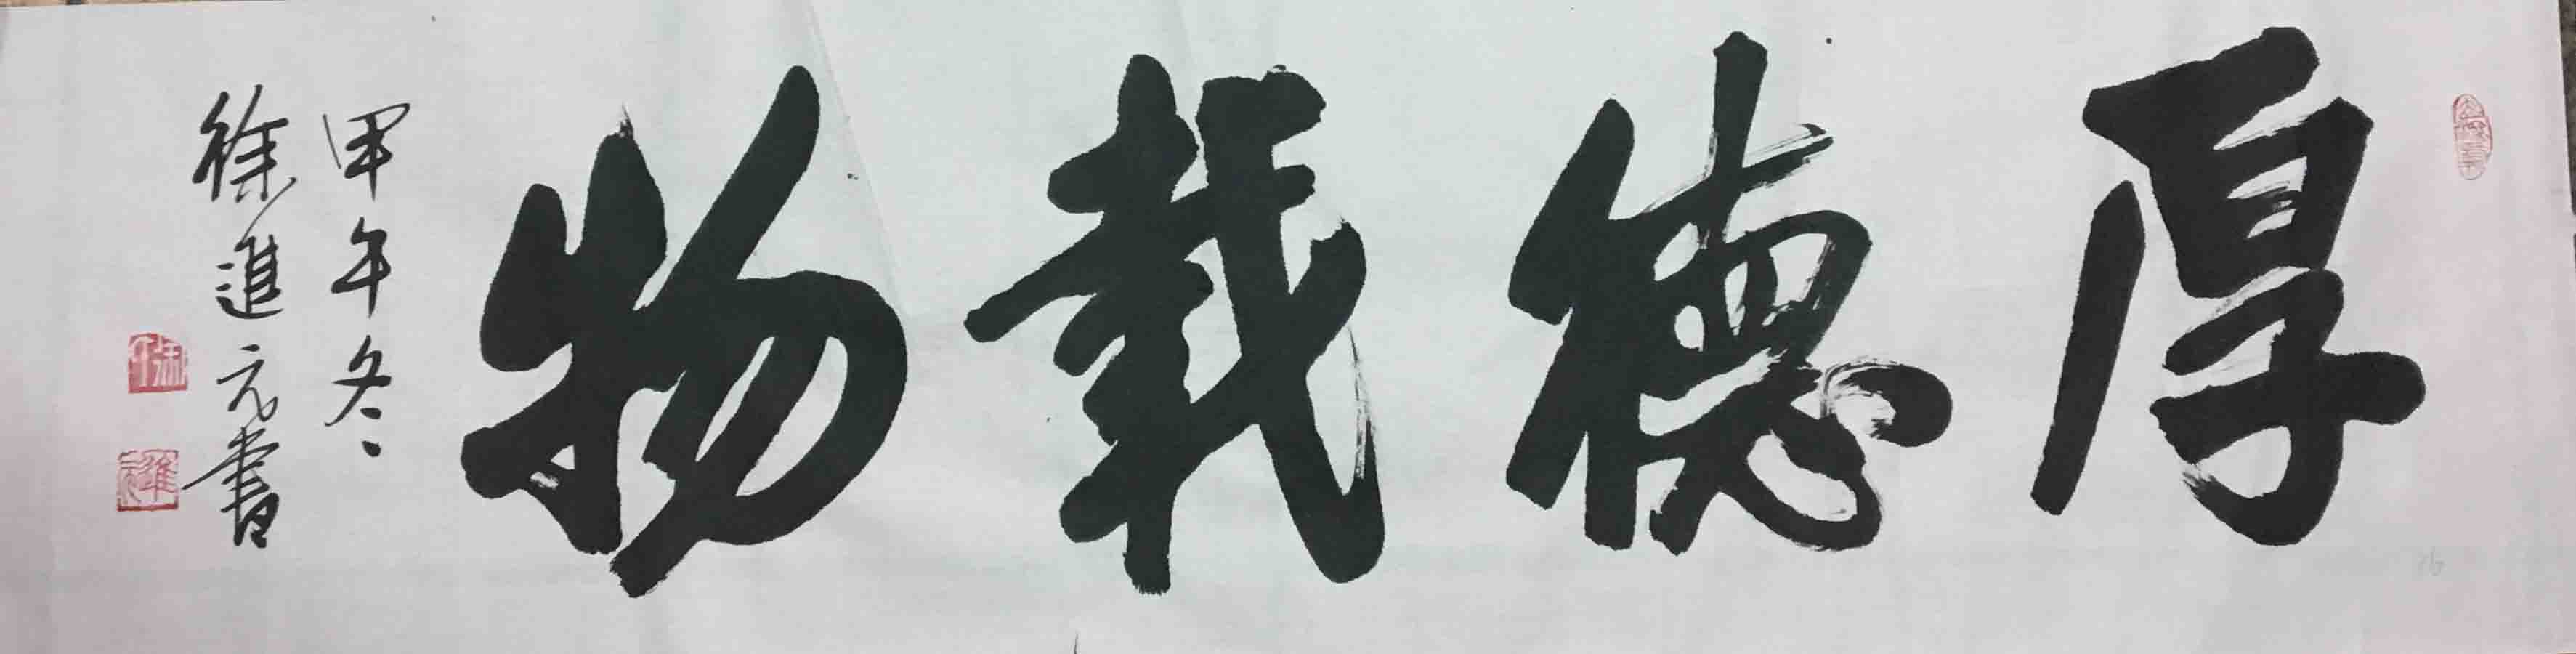 厚德載物
甲午冬
徐進元書